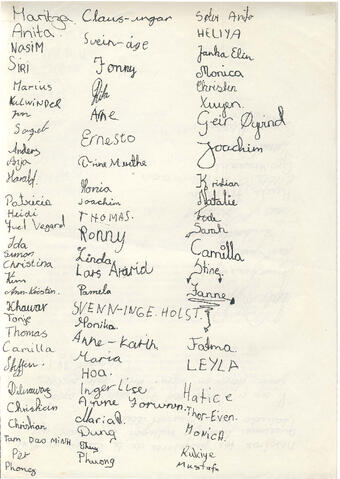 Maritza
Anita
NASIM
SIRI
Marius
KULWINDER
Anders
Anja
Harald
Patricia
Heidi
Yuel Vegard
Ida
Simon
Christina
Kim
Ann-Kristin
Khawar
Tonje
Thomas
Camilla
Steffen
Dilnawaz
Christian
Christian
TAM DAO MINH
Per
Phong
Claus-ungar
Svein-åge
Jonny
Rita
Ane
Ernesto
Monia
Joachim
THOMAS.
RONNY
Linda
Lars Arvid
Pamela
SVENN-INGE. HOLST.
Monika
Anne-Karin
Maria
Hoa.
Inger Lise
Maria R.
Dung
Thuy
Phuong
HELIYA
Janka Elin
Monica
Christin
Xuyen.
Geir Øyvind
Joachim
Kristian
Natalie
Sarah
Camilla
Stine
Janne
Fatma
LEYLA
Hatice
Thor-Even.
MONICA.
Rukiye
Mustafa